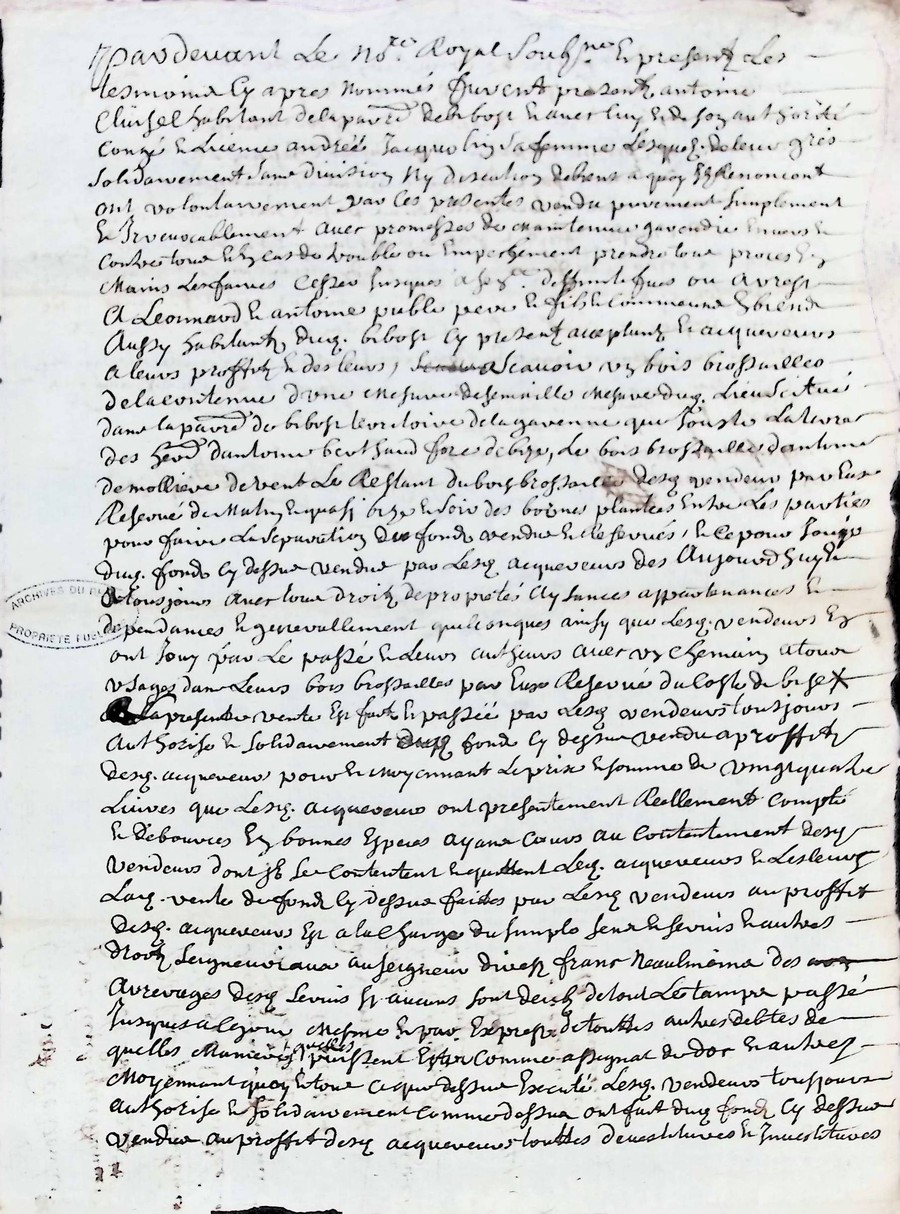 Pardevant Le no.re Royal soubs.né En presence Les
tesmoins Cy apres Nommés furent presents antoine
Clusel habitant de la parr.e de bibost En avec luy Et de son authorité
Congé Et Licence andréé Jacquolin sa femme Lesquels de leur grés
solidairement sans division Ny discution de biens a quoy Ils Renoncent
ont volontairement par Ces presentes vendu purement simplement
Et Irrevocablement avec promesses de maintenir garendir Envers Et
Contre tous Et En Cas de trouble ou Empechement prendre tous proces En
Mains Les faire Cesser Jusques a
A Leonnard Et antoine pere Et fils
Aussy habitants dud. bibost Cy presents acceptants Et acquereurs
a leurs proffits Et des leurs, Scavoir un bois brossailles
de la contenue d'une mesure de semaille mesure dud. Lieu Scitué
dans la parr.e de bibost territoire de la garenne que Jouste La terre
des her.s d'antoine berthaud de bize, Le bois brossailles d'antoine
demolliere de vent Le Restant du bois brossailles desd. vendeurs par Eux
Reservé de Matin Et quasy bize Et soir des bornes plantées Entre Les parties
pour faire La Separation du fond vendu Et Reservés, Et Ce pour Jouir
dud. fond Cy dessus vendu par Lesd. acquereurs des Aujourd'huy Et
a tousjours avec tous droits de proprietés aysances appartenances Et
dependances Et generallement quelconques ainsy que Lesd. vendeurs En
ont Jouy par Le passé Et Leurs autheurs avec un Chemin a tous
usages dans Leurs bois brossailles par Eux Reservé du Costé de bize
La presente vente Est faite Et passéé par Lesd. vendeurs tousjours
authorisé Et solidairement dud. fond Cy dessus vendu a proffit
desd. acquereurs pour Et moyennant Le prix Et somme de vingt quatre
Livres que Lesd. acquereurs ont presentement Reellement Compté
Et Debourcés En bonnes Especes ayant Cours au Contentement desd.
vendeurs dont Ils se Contentent Et quittent Lesd. acquereurs Et Les leurs
Lad. vente du fond Cy dessus faites par Lesd. vendeurs au proffit
desd. acquereurs Est a la Charge du simple sens Et servis Et autres
droits Seigneuriaux au seigneur franc Neaulmoins des
Arrerages desd. servis Sy aucuns sont deubs de tout Le tamps passé
Jusques a Ce jour mesme Et par Expres de touttes autres debtes de
quelles Manieres quelles puissent Estre Comme assignat de dot Et autres
Moyennant quoy Et tout Ce que dessus Executé Lesd. vendeurs tousjours
authorisé Et solidairement Comme dessus ont fait dud. fond Cy dessus
vendu au proffit desd. acquereurs touttes devestitures Et Investitures
ARCHIVES DU
PROPRIETE PUBLIQUE